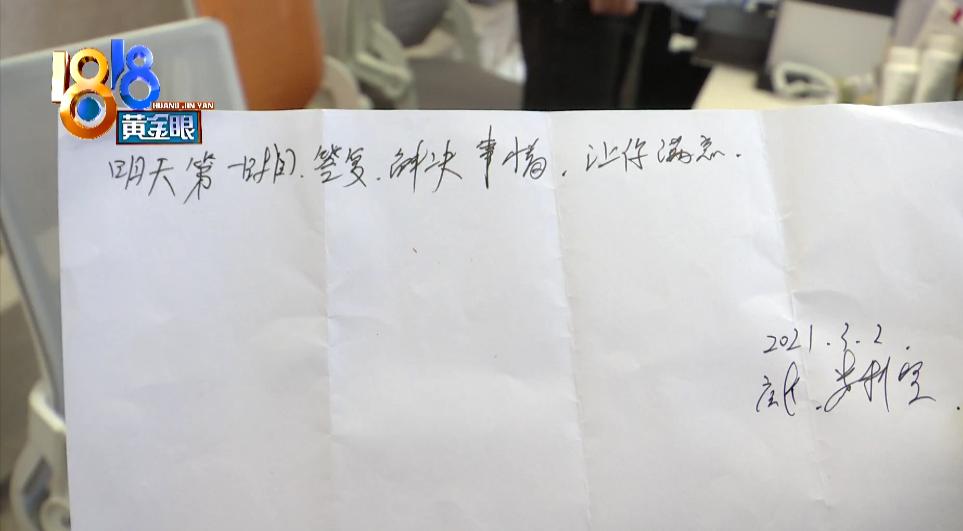 1818
HUANG JIN YAN
黄金眼
明天第一时间、答复、解决事情,让你满意.
2021.3.2.